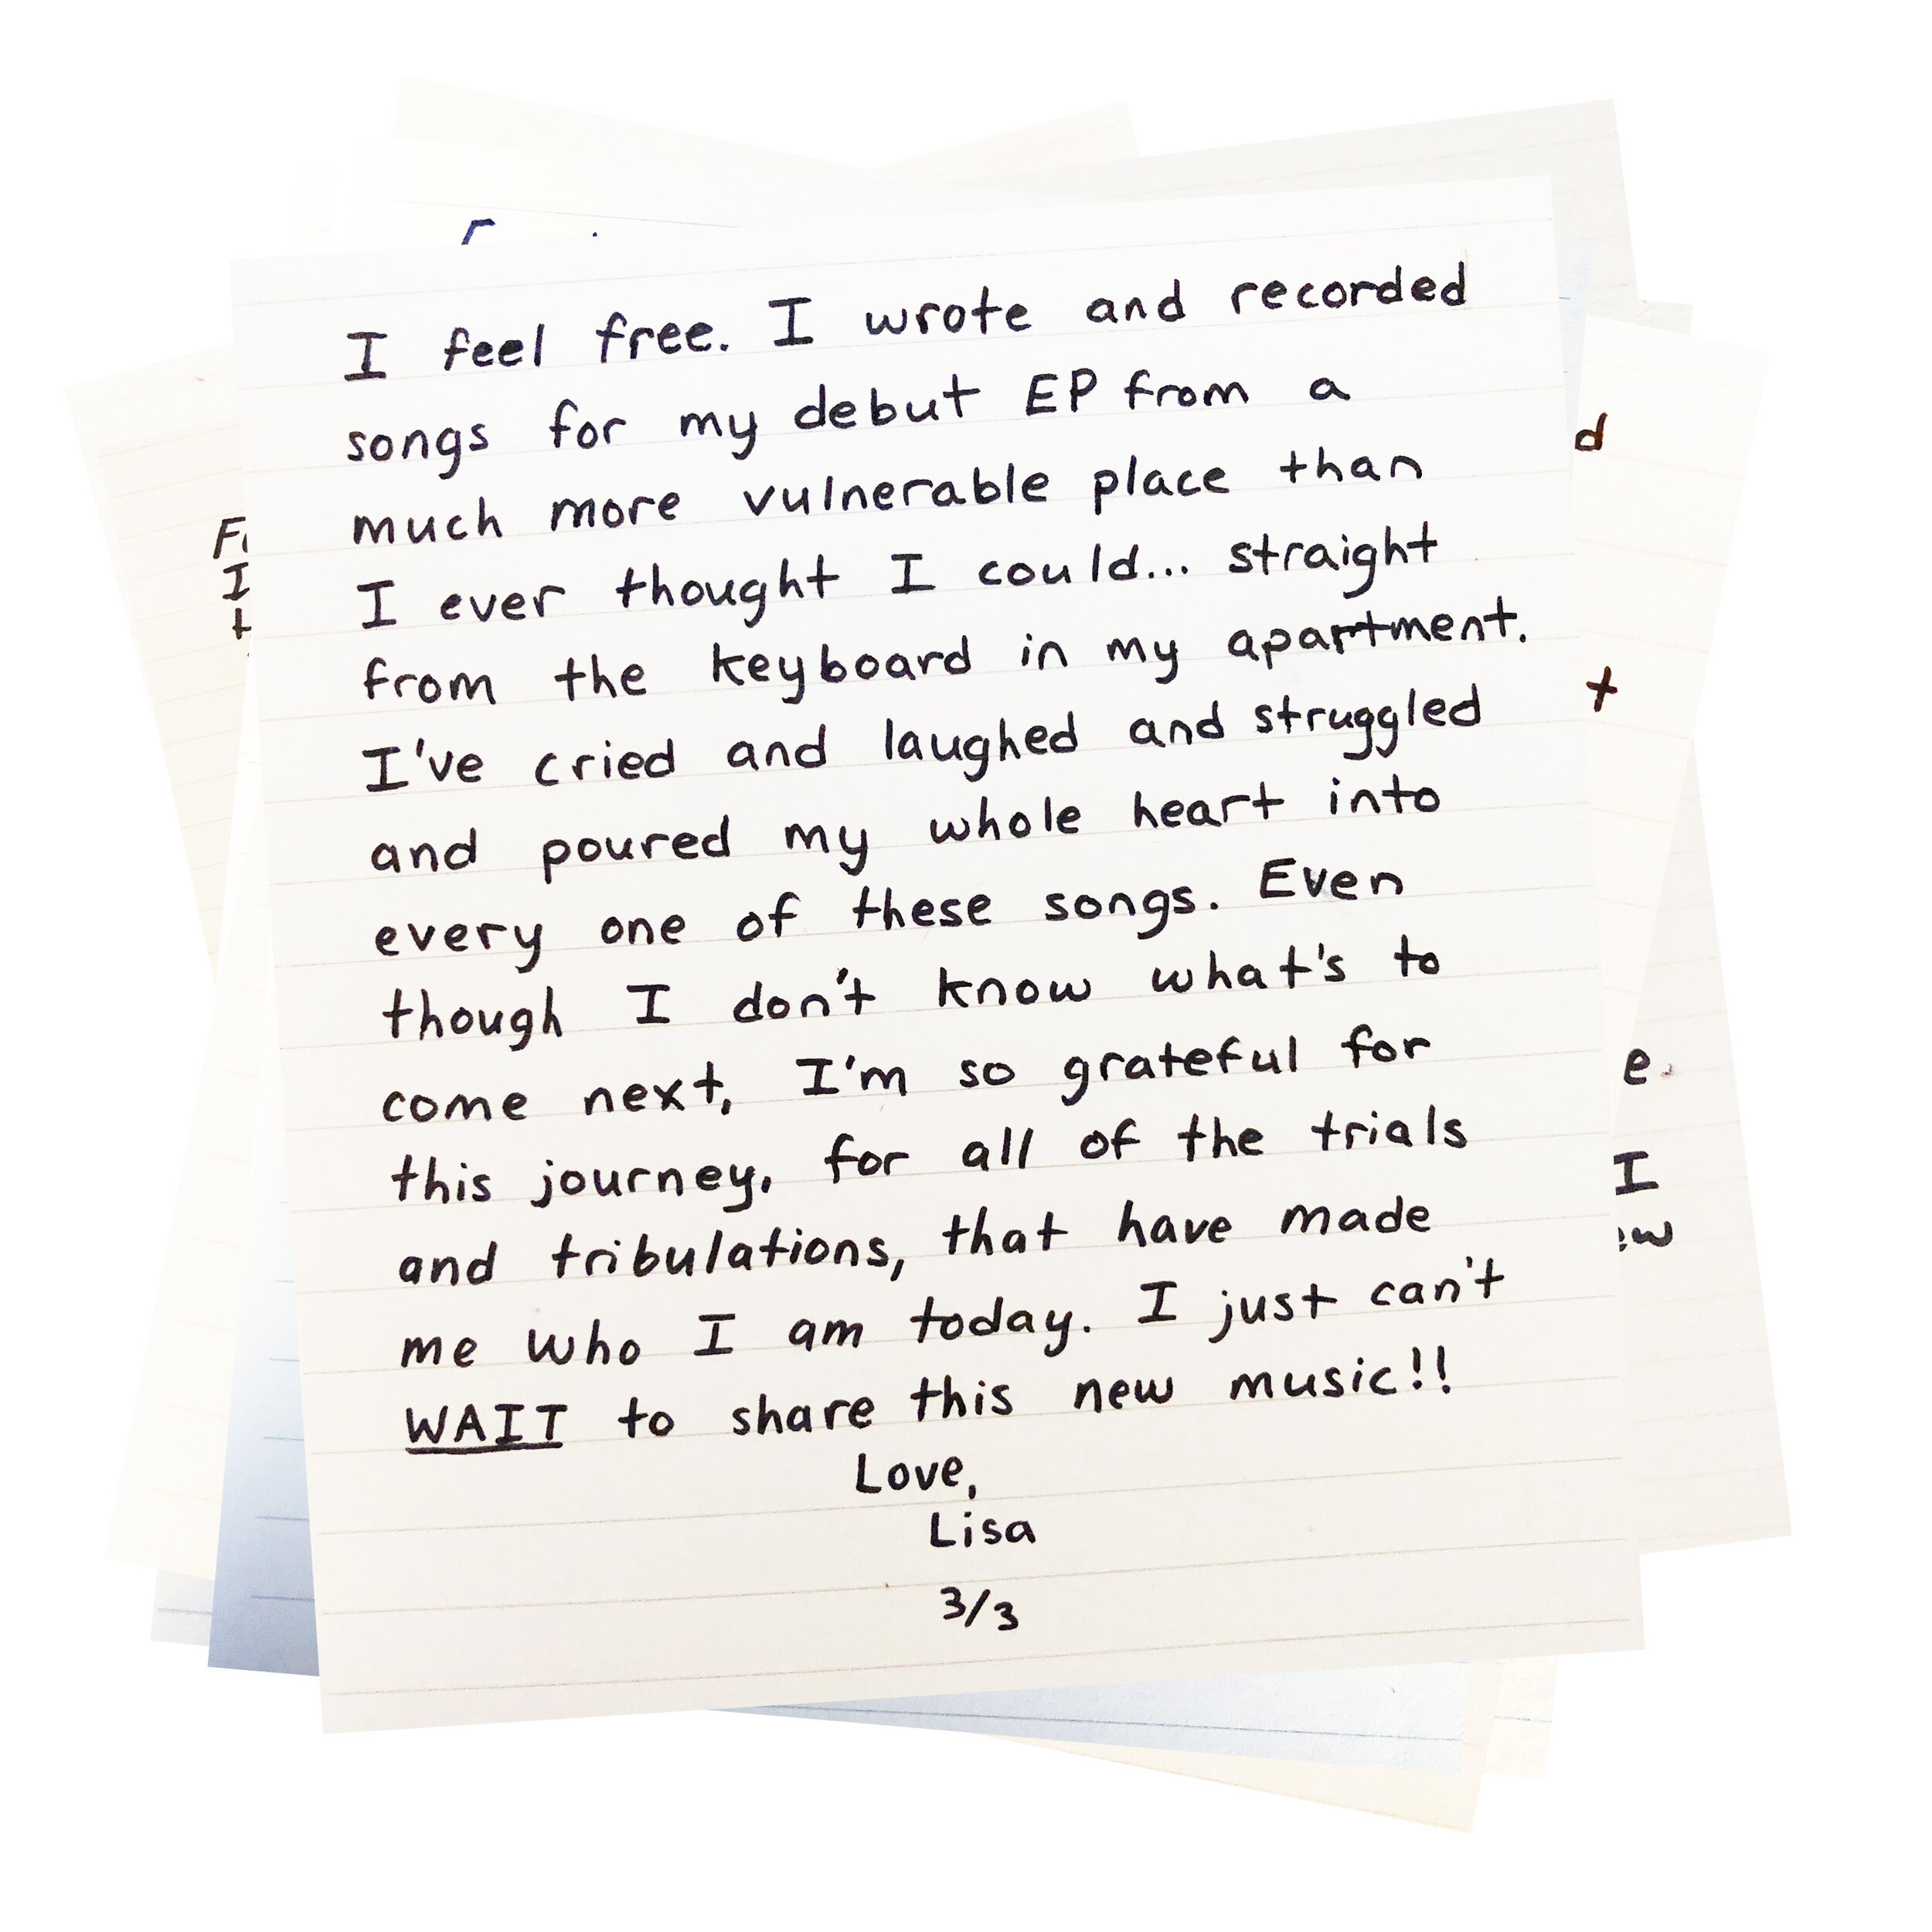 I feel free. I wrote and recorded
songs for my debut EP from a
much more vulnerable place than
I ever thought I could... straight
from the keyboard in my apartment.
I've cried and laughed and struggled
and poured my whole heart into
every one of these songs. Even
though I don't know what's to
come next, I'm so grateful for
this journey, for all of the trials
and tribulations, that have made
me who I am today. I just can't
WAIT to share this new music!!
Love,
Lisa
3/3